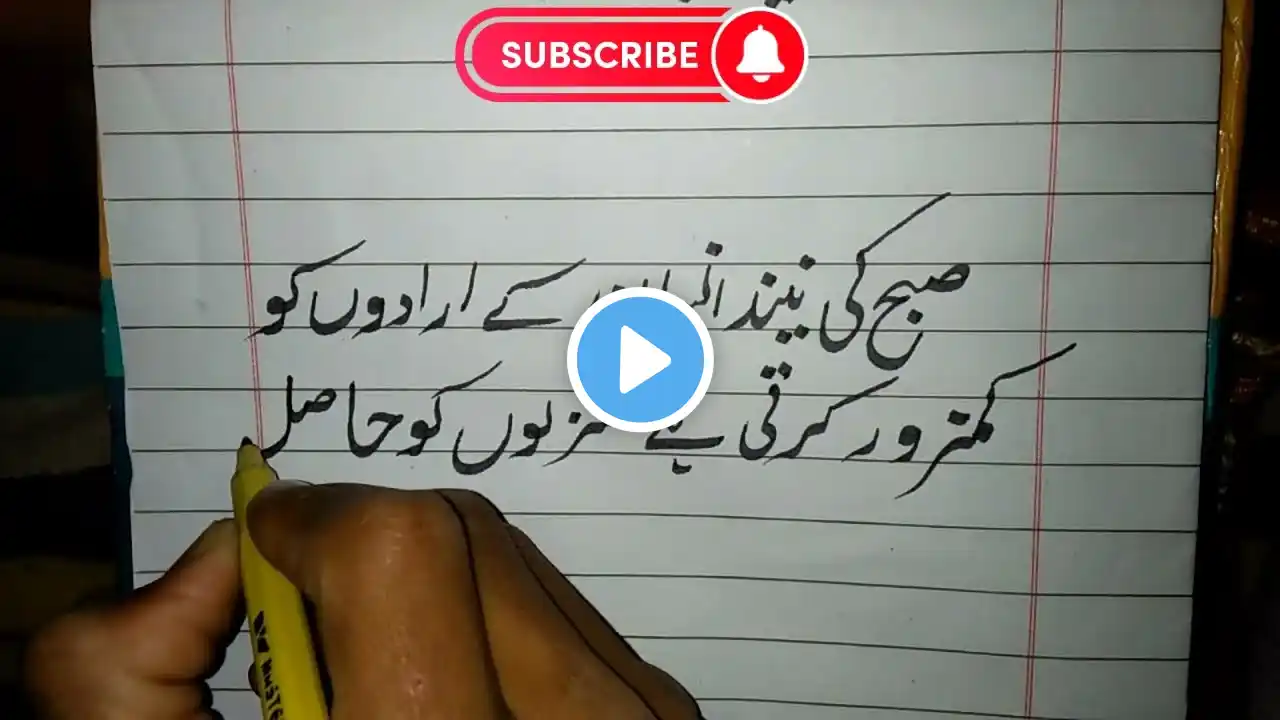 SUBSCRIBE
صبح کی نیند انسان کے ارادوں کو
کمزور کرتی ہے منزلوں کو حاصل